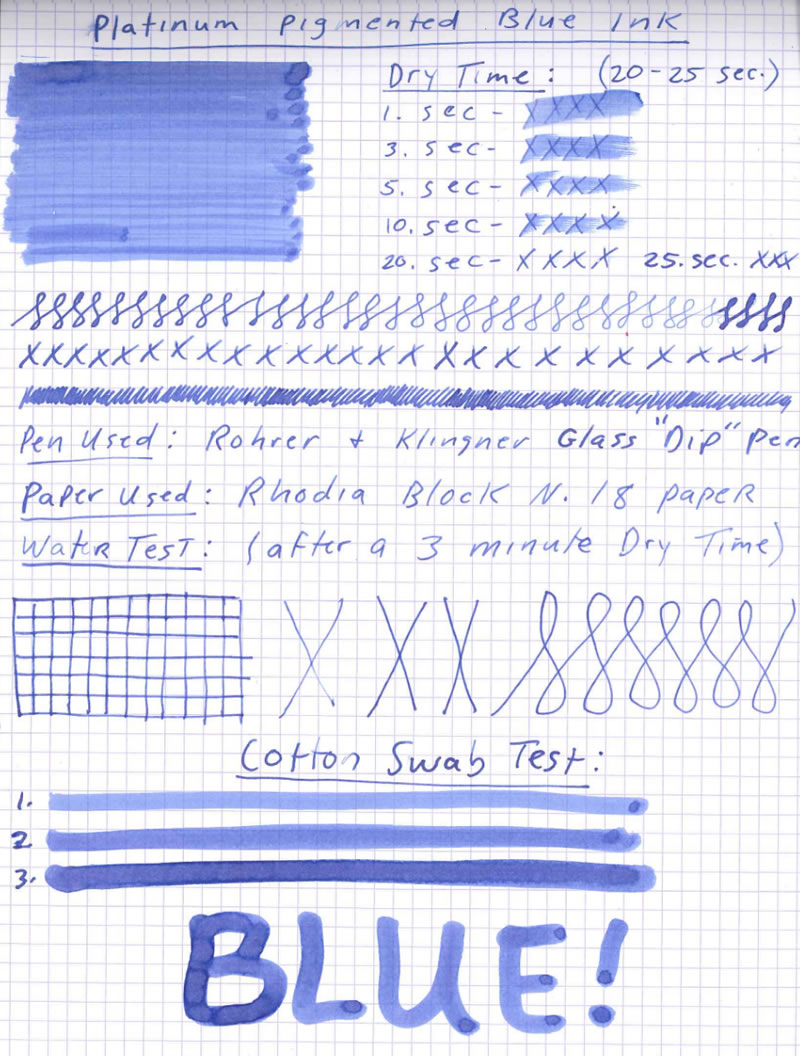 Platinum Pigmented Blue Ink
Dry Time: (20-25 sec.)
1. sec - XXXX
3. sec - XXXX
5. sec - XXXX
10. sec - XXXX
20. sec - XXXX 25. sec. XXX
XXXXXXXXXXXXXXXXXXXXXXXXXXX
Pen Used: Rohrer + Klingner Glass "Dip" Pen
Paper Used: Rhodia Block N. 18 paper
Water Test: (after a 3 minute Dry Time)
X X X
Cotton Swab Test:
1.
2.
3.
BLUE!